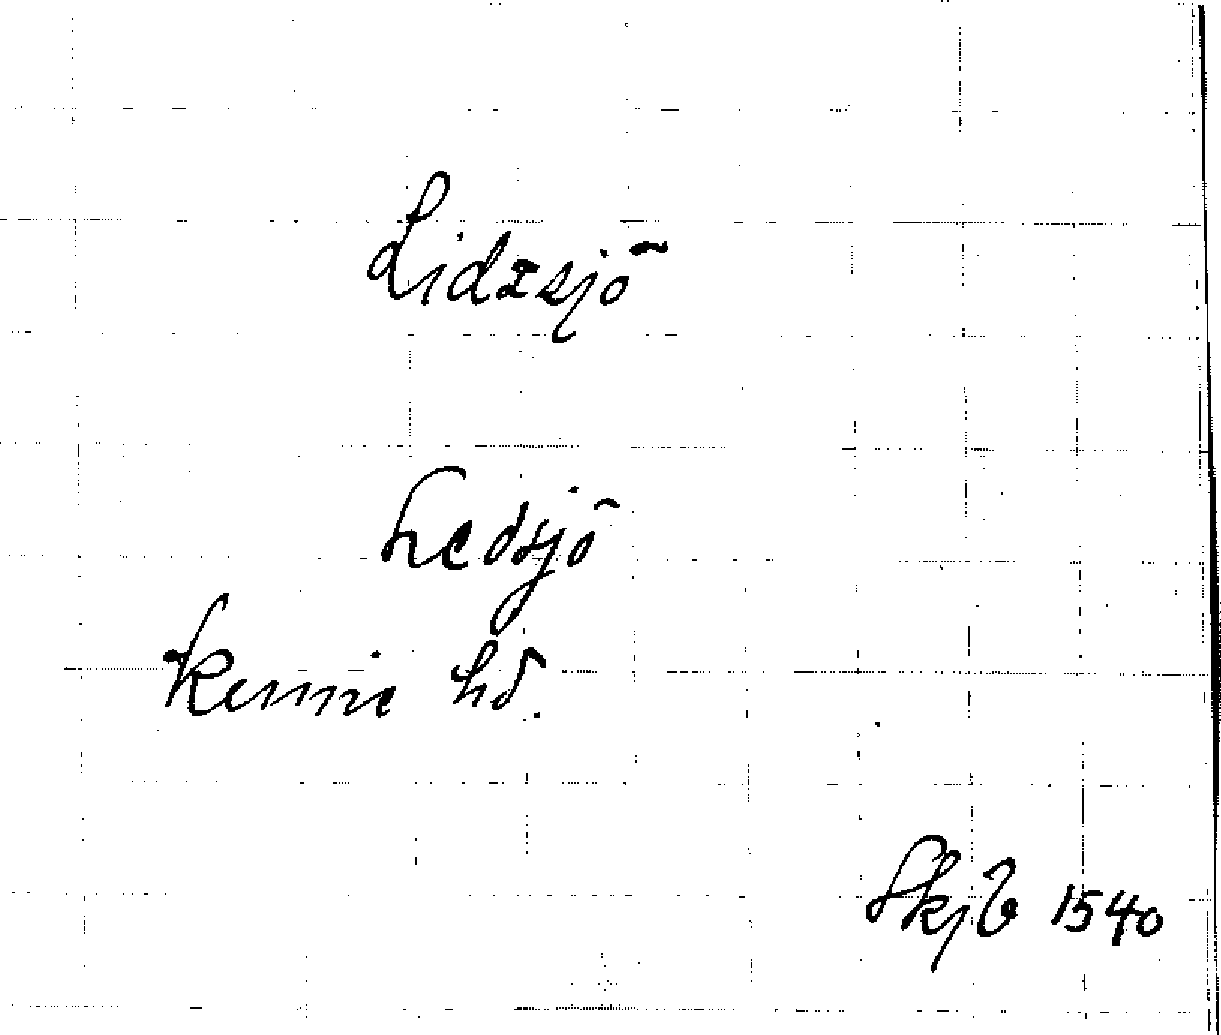 Lidzsjö
Ledsjö
Kinne hd.
SkjB 1540